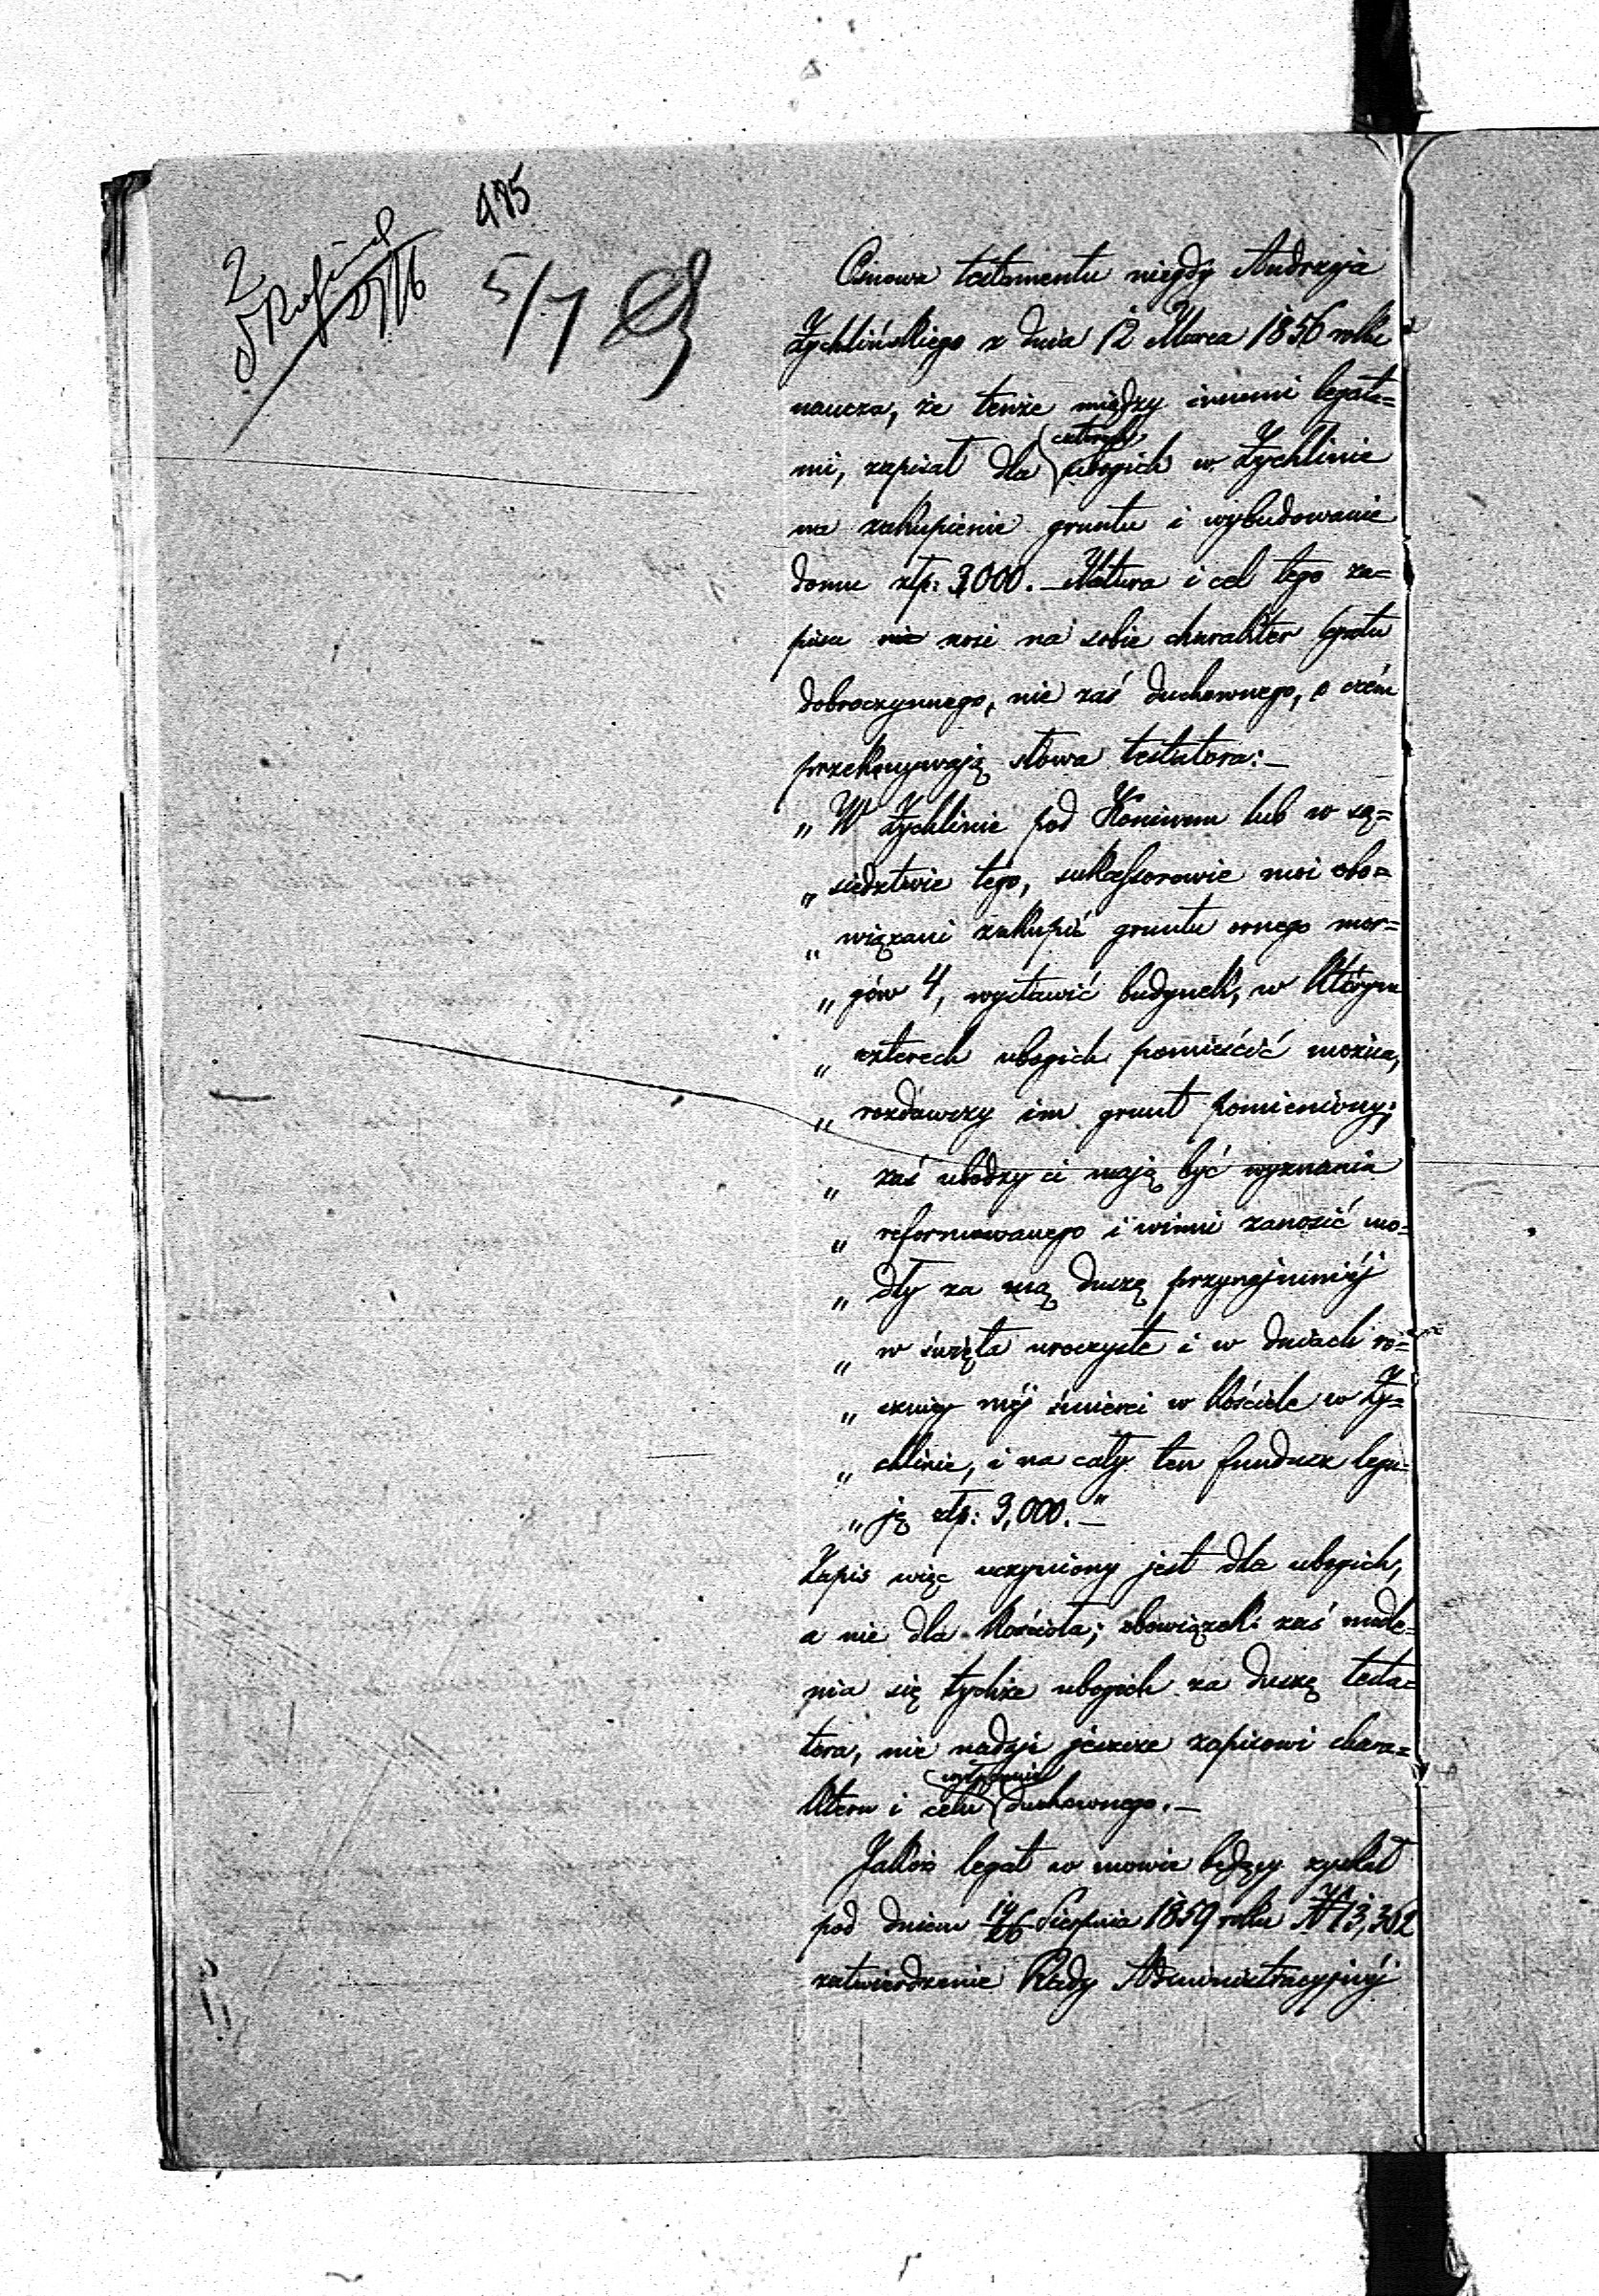 485
2
5/7
Osnowa testamentu niegdy Andrzeja
Żychlińskiego z dnia 12 Marca 1856 roku
naucza, że tenże między innemi legata=
mi, zapisał dla czterech ubogich w Żychlinie
na zakupienie gruntu i wybudowanie
domu złp: 3,000. — Natura i cel tego za=
pisu nosi na sobie charakter legatu
dobroczynnego, nie zaś duchownego, o czém
przekonywają słowa testatora: —
„ W Żychlinie pod Koninem lub w są=
„ siedztwie tego, sukcessorowie moi obo=
„ wiązani zakupić gruntu ornego mor=
„ gów 4, wystawić budynek, w którym
„ czterech ubogich pomieścić można,
„ rozdawszy im grunt pomieniony;
„ zaś ubodzy ci mają być wyznania
„ reformowanego i winni zanosić mo=
„ dły za mą duszę przynajmniéj
„ w święta uroczyste i w dniach ro=
„ cznicy méj śmierci w kościele w Ży=
„ chlinie, i na cały ten fundusz legu=
„ ję złp: 3,000. —"
Zapis więc uczyniony jest dla ubogich,
a nie dla kościoła; obowiązek zaś modle=
nia się tychże ubogich za duszę testa=
tora, nie nadaje jeszcze zapisowi chara=
kteru i celu wyłącznie duchownego. —
Jakoż legat w mowie będący zyskał
pod dniem 14/26 Sierpnia 1859 roku № 13,362
zatwierdzenie Rady Administracyjnéj